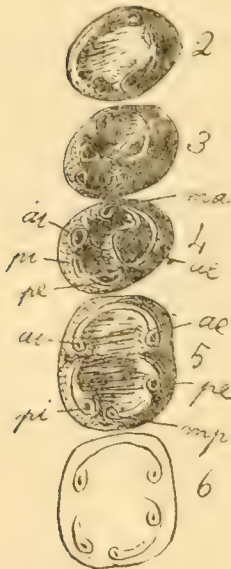 2
3
ma
ai
4
pi
ae
pe
ai
ae
5
pi
pe
mp
6